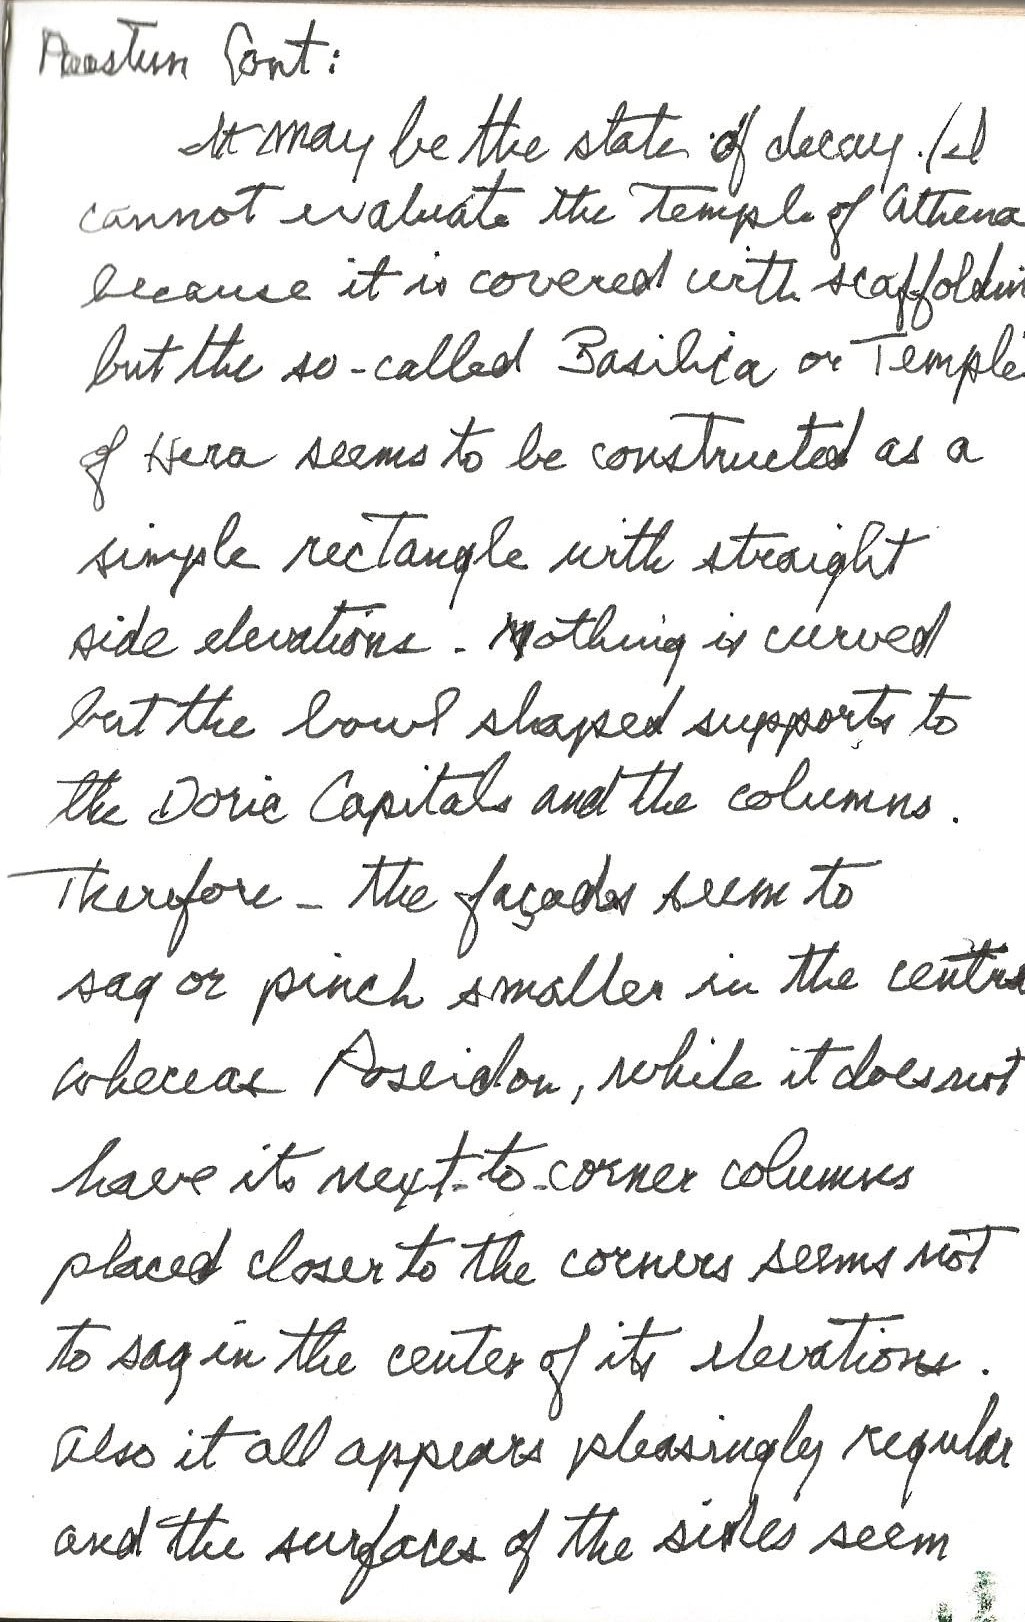 Paestum Cont:
It may be the state of decay. (I
cannot evaluate the Temple of Athena
because it is covered with scaffoldin
but the so-called Basilica or Temple
of Hera seems to be constructed as a
simple rectangle with straight
side elevations. Nothing is curved
but the bowl shaped supports to
the Doric Capitals and the columns.
Therefore - the façades seem to
sag or pinch smaller in the centra
whereas Poseidon, while it does not
have its next-to-corner columns
placed closer to the corners seems not
to sag in the center of its elevations.
Also it all appears pleasingly regular
and the surfaces of the sides seem